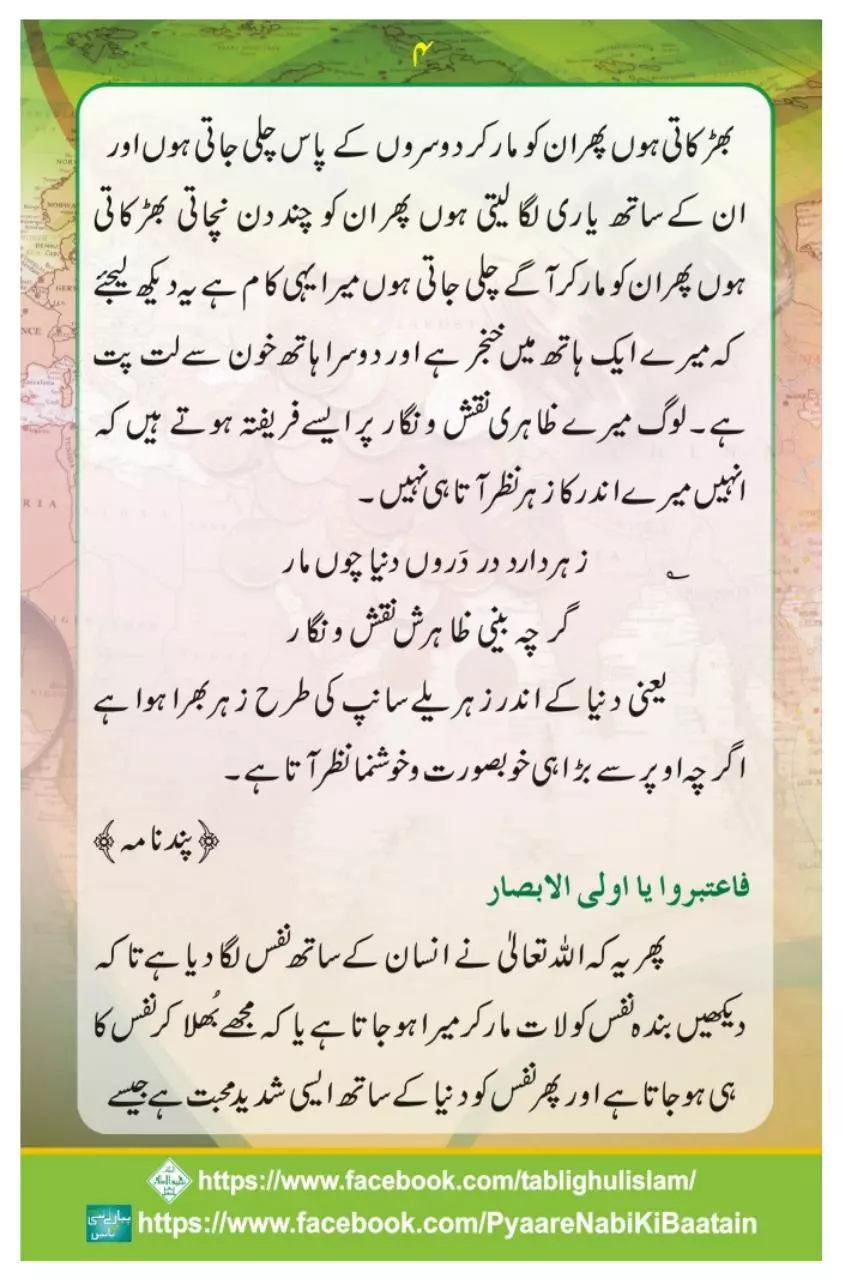 ۴
بھڑکاتی ہوں پھر ان کو مار کر دوسروں کے پاس چلی جاتی ہوں اور
ان کے ساتھ یاری لگا لیتی ہوں پھر ان کو چند دن نچاتی بھڑکاتی
ہوں پھر ان کو مار کر آگے چلی جاتی ہوں میرا یہی کام ہے یہ دیکھ لیجئے
کہ میرے ایک ہاتھ میں خنجر ہے اور دوسرا ہاتھ خون سے لت پت
ہے۔ لوگ میرے ظاہری نقش و نگار پر ایسے فریفتہ ہوتے ہیں کہ
انہیں میرے اندر کا زہر نظر آتا ہی نہیں ۔
؎ زہر دارد در دَروں دنیا چوں مار
گر چہ بینی ظاہرش نقش و نگار
یعنی دنیا کے اندر زہریلے سانپ کی طرح زہر بھرا ہوا ہے
اگر چہ اوپر سے بڑا ہی خوبصورت و خوشنما نظر آتا ہے ۔
﴿پند نامہ﴾
فاعتبروا یا اولی الابصار
پھر یہ کہ اللہ تعالیٰ نے انسان کے ساتھ نفس لگا دیا ہے تا کہ
دیکھیں بندہ نفس کو لات مار کر میرا ہو جاتا ہے یا کہ مجھے بُھلا کر نفس کا
ہی ہو جاتا ہے اور پھر نفس کو دنیا کے ساتھ ایسی شدید محبت ہے جیسے
https://www.facebook.com/tablighulislam/
پیارے نبی کی باتیں
https://www.facebook.com/PyaareNabiKiBaatain